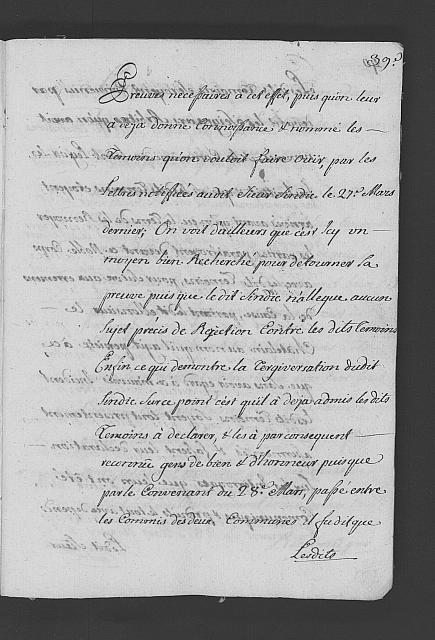 39.
Preuves necessaires à cet effet, puis qu'on leur
a deja donné Connoissance & nommé les
Temoins qu'on vouloit faire ouir, par les
Lettres notifiées audit Sieur Sindic le 27.e Mars
dernier; On voit d'ailleurs que c'est Icy un
moyen bien Recherché pour detourner la
preuve puis que le dit Sindic n'allegue aucun
Sujet précis de Rejection Contre les dits Temoins
Enfin ce qui demontre la Tergiversation dudit
Sindic Sur ce point c'est qu'il à deja admis lesdits
Temoins à declarer, & les à par consequent
reconnu gens de bien & d'honneur puis que
par le Convenant du 28.e Mars, passé entre
les Commis des deux Communes il fut dit que
Lesdits